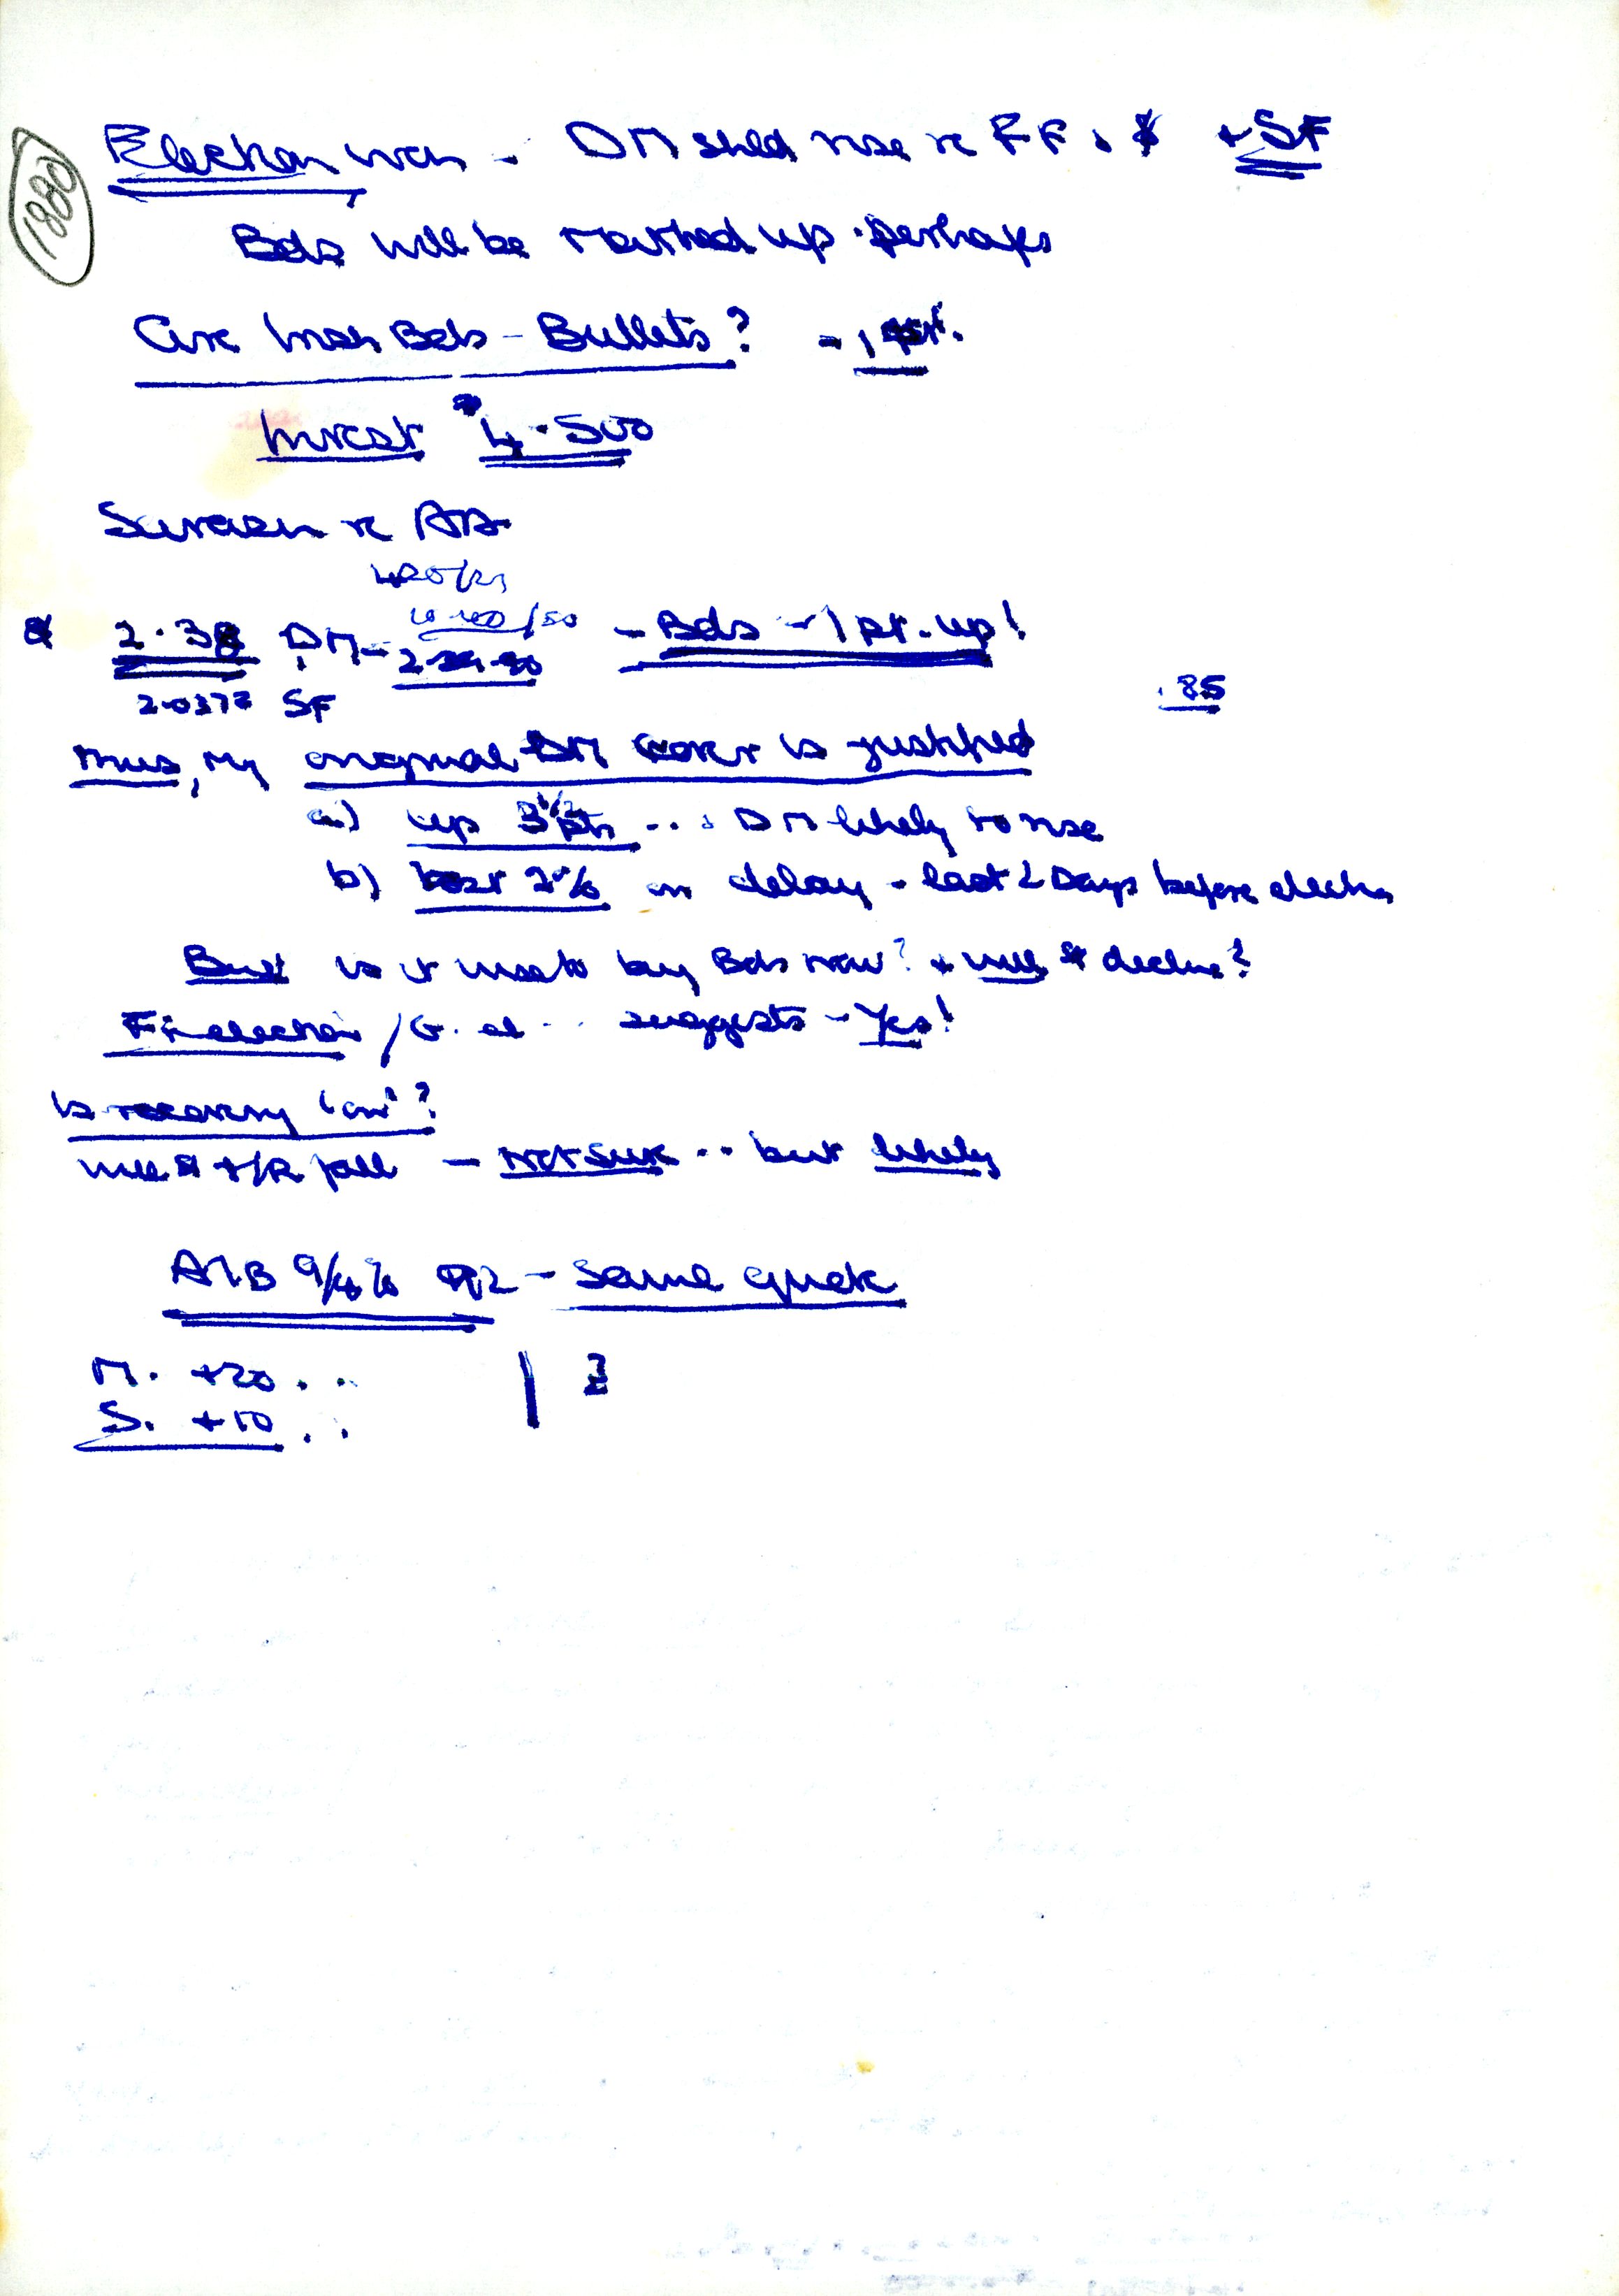 1880
Election won - DM shld rise re FF. $ + SF
Bds will be marked up. perhaps
Are Irish Bds - Bullets? - 1
Invest 4.500
re AA
2.38 DM - - Bds - 1 pt. up!
2.0372 SF .85
Thus, my original DM cover is justified
a) up 3½ pts ... DM likely to rise
b) lost 2% on delay - last 2 Days before electn
But is it wise to buy Bds now? + will $ decline?
election / G. et .. suggests - Yes!
Is recovery 'on'?
will $ + I/R fall - Not sure .. but likely
AIB 9¼% 92 - same quote
M. +20 . .
S. +10 . .